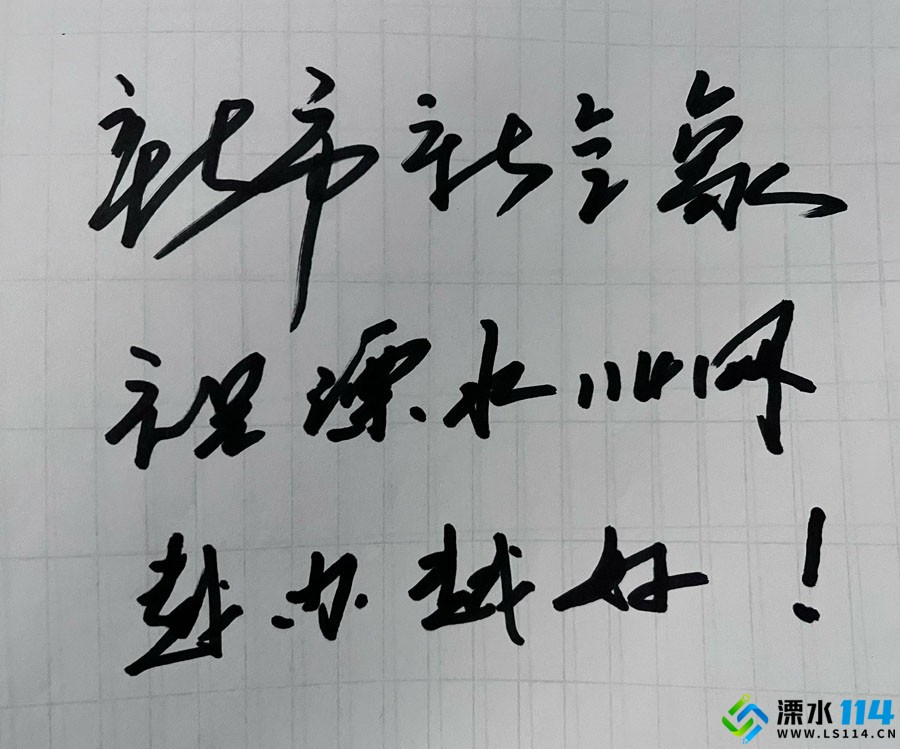 新市新气象
祝溧水114网
越办越好！
溧水114
WWW.LS114.CN